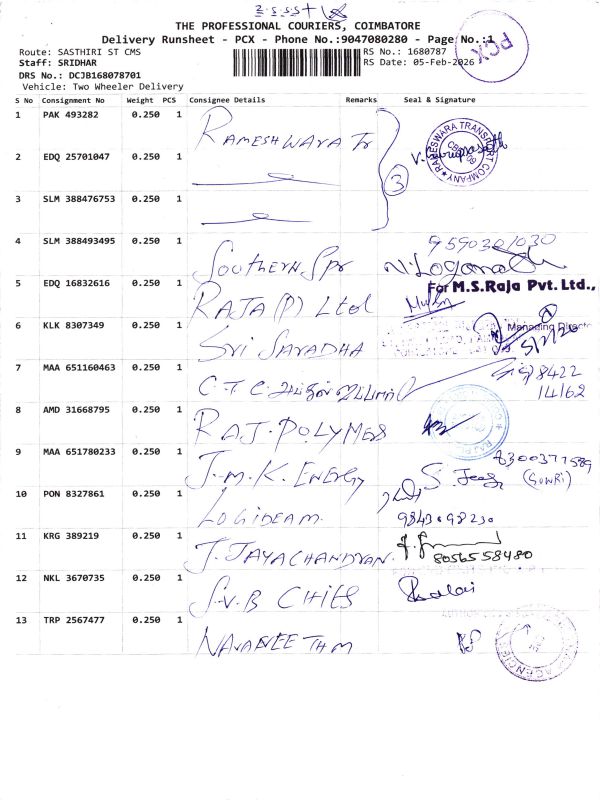 THE PROFESSIONAL COURIERS, COIMBATORE
Delivery Runsheet - PCX - Phone No.:9047080280 - Page No.:1
PCX
Route: SASTHIRI ST CMS
RS No.: 1680787
Staff: SRIDHAR
RS Date: 05-Feb-2026
DRS No.: DCJB168078701
Vehicle: Two Wheeler Delivery
S No Consignment No Weight PCS Consignee Details Remarks Seal & Signature
1 PAK 493282 0.250 1 RAMESHWARA Tr
2 EDQ 25701047 0.250 1
3
RAMESWARA TRANSPORT COMPANY
3 SLM 388476753 0.250 1
4 SLM 388493495 0.250 1 SOUTHERN Spr
9590301030
N. Loganath
5 EDQ 16832616 0.250 1 RAJA (P) Ltd
For M.S.Raja Pvt. Ltd.,
Managing Director
6 KLK 8307349 0.250 1 SRI SARADHA
5/2/26
7 MAA 651160463 0.250 1 C.T.C.
98422
14162
8 AMD 31668795 0.250 1 RAJ. POLYMES
9 MAA 651780233 0.250 1 J.M.K. ENERGY
8300377589
(GOWRI)
10 PON 8327861 0.250 1 LOGIDEAM
9843098230
11 KRG 389219 0.250 1 J. JAYACHANDRAN.
8056558480
12 NKL 3670735 0.250 1 S.V.B CHITS
13 TRP 2567477 0.250 1 NAVANEETHM